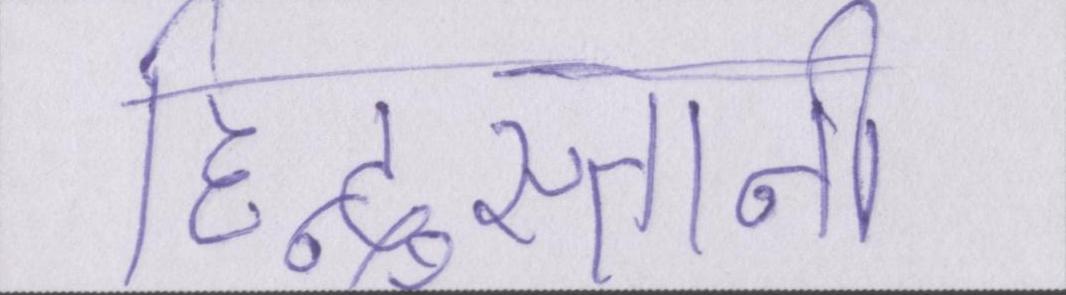 हिन्दुस्तानी